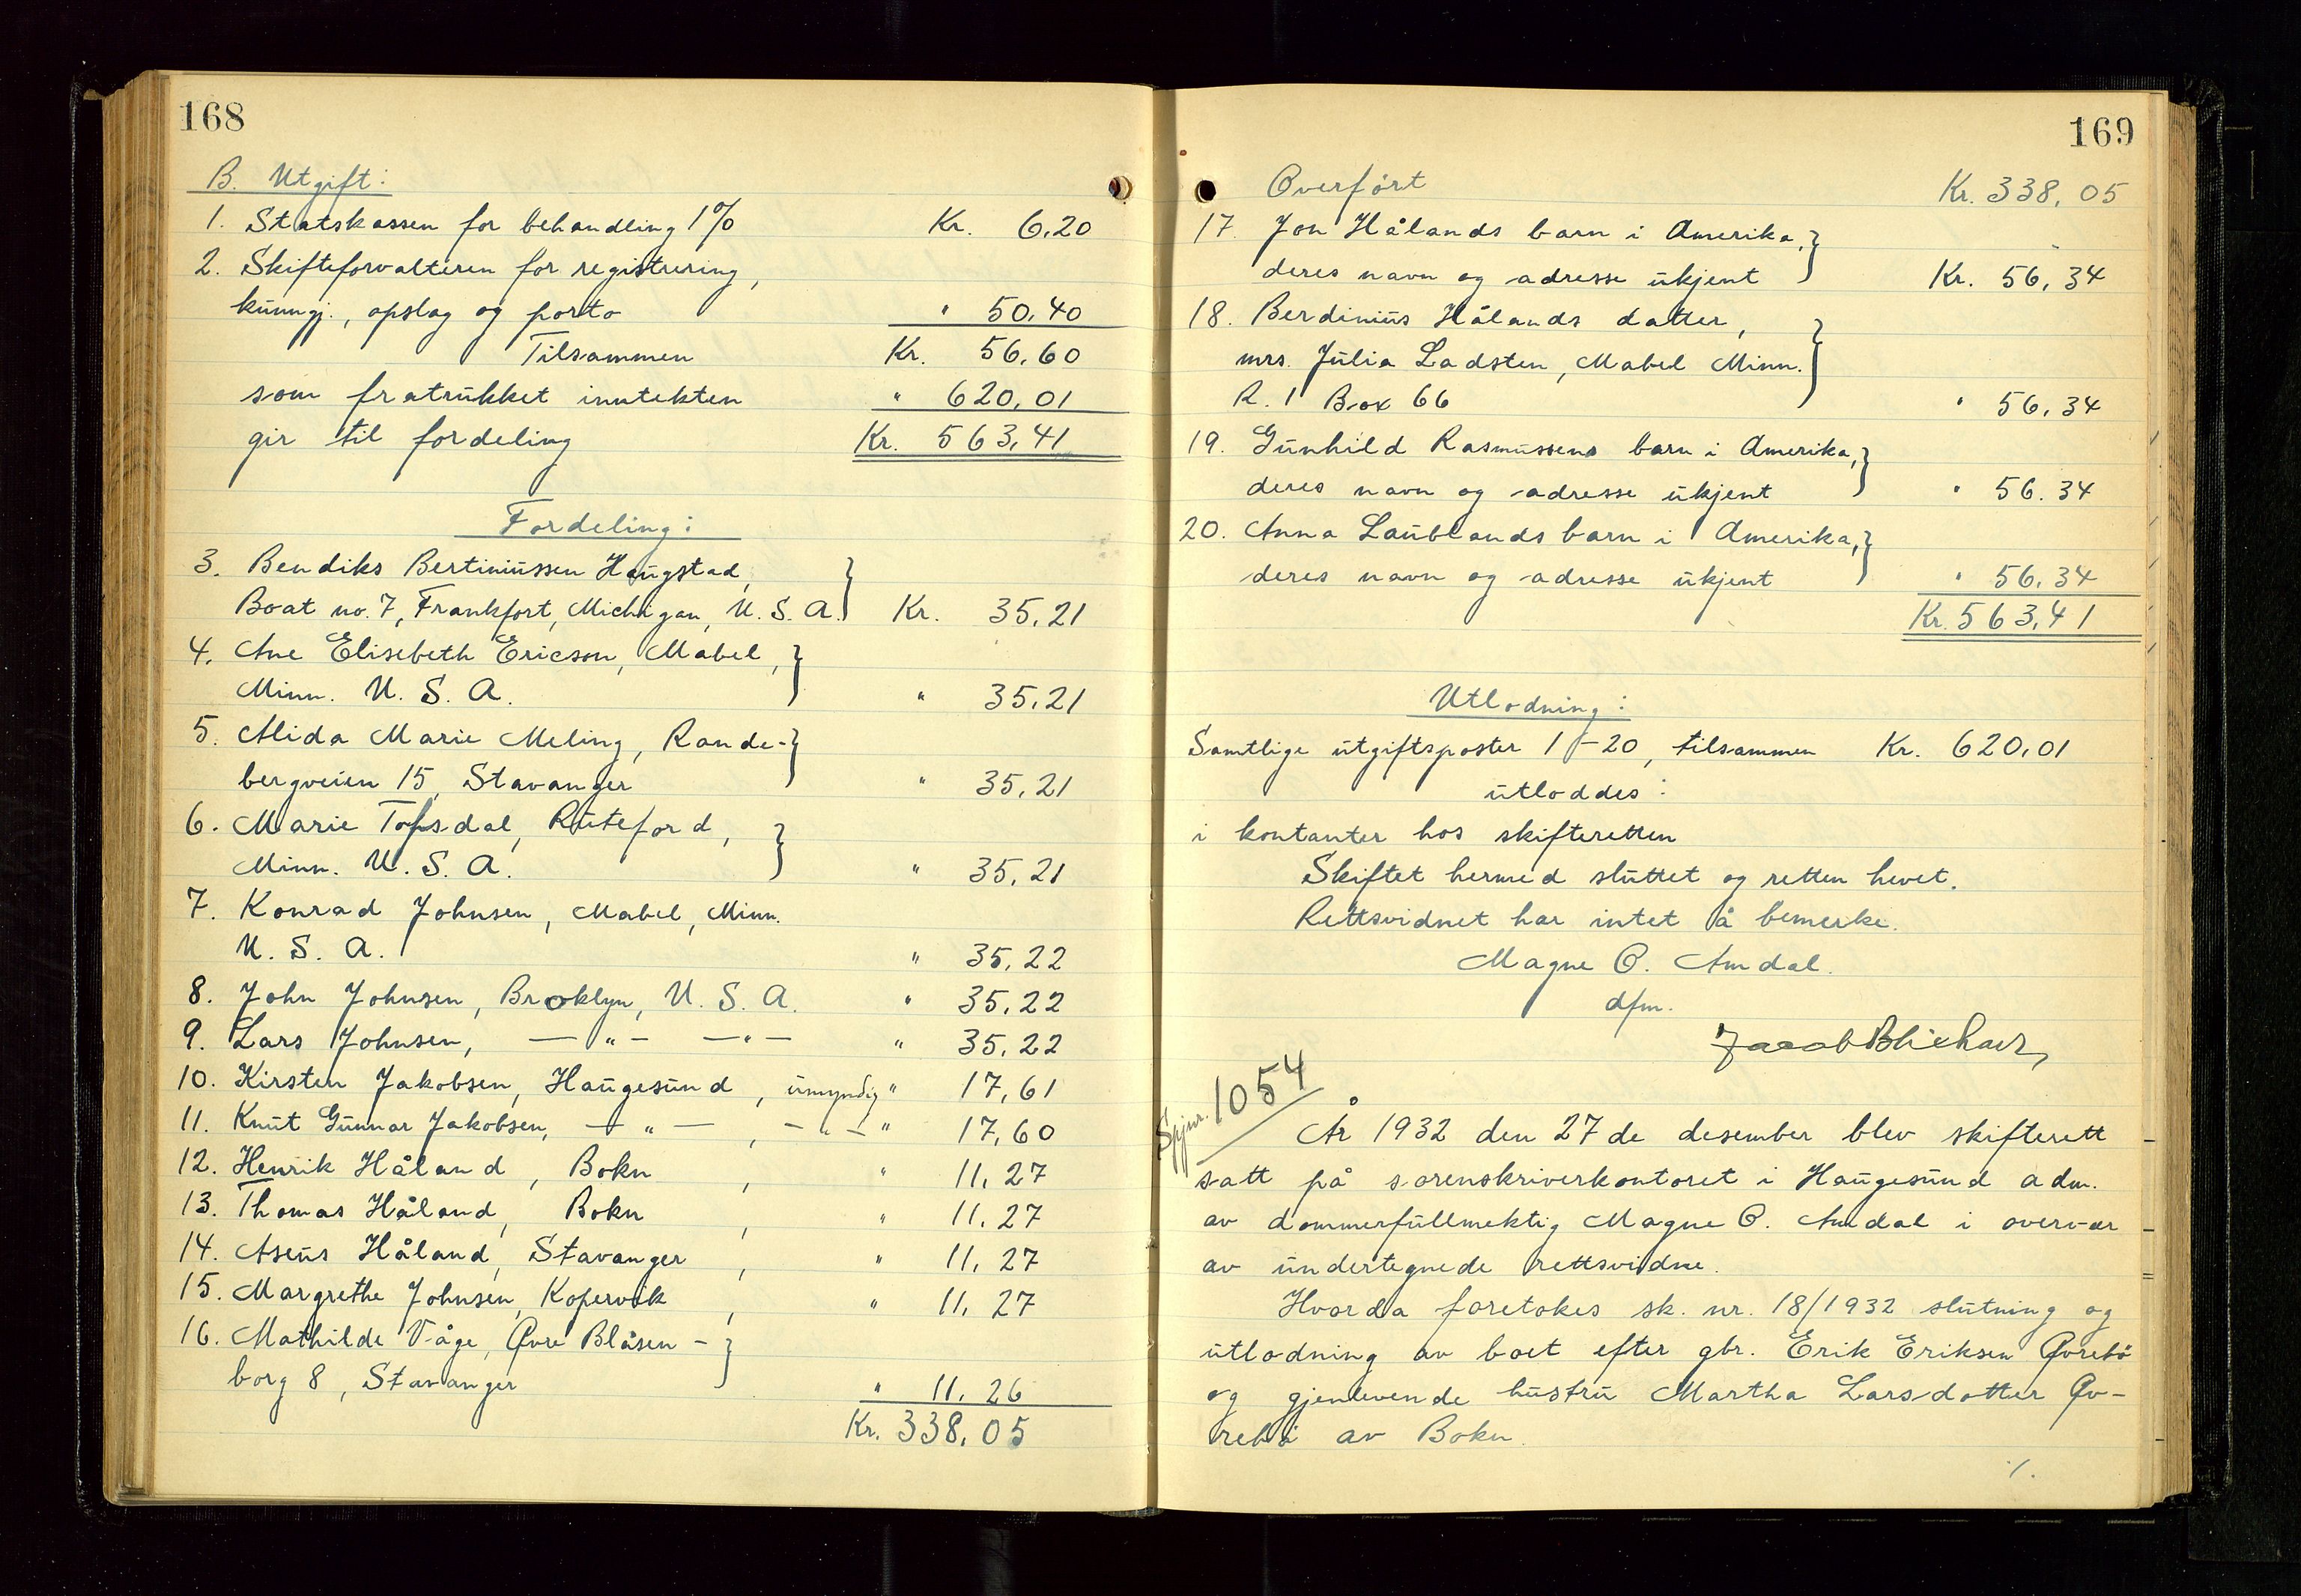 168
B. Utgift:
1. Statskassen for behandling 1% Kr. 6,20
2. Skifteforvalteren for registrering,
kunngj., opslag og porto " 50,40
Tilsammen Kr. 56,60
som fratrukket inntekten " 620,01
gir til fordeling Kr. 563,41
Fordeling:
3. Bendiks Bertiniussen Haugstad,
Boat no. 7, Frankfort, Michigan, U.S.A. Kr. 35,21
4. Ane Elisebeth Ericson, Mabel,
Minn. U.S.A. " 35,21
5. Alida Marie Meling, Rande-
bergveien 15, Stavanger " 35,21
6. Marie Tofsdal, Ruteford,
Minn. U.S.A. " 35,21
7. Konrad Johnsen, Mabel, Minn.
U.S.A. " 35,22
8. John Johnsen, Brooklyn, U.S.A. " 35,22
9. Lars Johnsen, — " — — " — " 35,22
10. Kirsten Jakobsen, Haugesund, umyndig " 17,61
11. Knut Gunnar Jakobsen, — " — , — " — " 17,60
12. Henrik Håland, Bokn , " 11,27
13. Thomas Håland, Bokn , " 11,27
14. Asens Håland, Stavanger , " 11,27
15. Margrethe Johnsen, Kopervik , " 11,27
16. Mathilde Våge, Øvre Blåsen-
borg 8, Stavanger " 11,26
Kr. 338,05
169
Overført Kr. 338,05
17. Jon Hålands barn i Amerika,
deres navn og adresse ukjent Kr. 56,34
18. Berdinius Hålands datter,
mrs. Julia Ladsten, Mabel Minn.
R. 1 Box 66 " 56,34
19. Gunhild Rasmussens barn i Amerika,
deres navn og adresse ukjent " 56.34
20. Anna Laublands barn i Amerika,
deres navn og adresse ukjent " 56,34
Kr. 563,41
Utlodning:
Samtlige utgiftsposter 1-20, tilsammen Kr. 620,01
utloddes:
i kontanter hos skifteretten
Skiftet hermed sluttet og retten hevet.
Rettsvidnet har intet å bemerke.
Magne O. Amdal.
dfm.
Jacob
Spjnr. 1054
År 1932 den 27de desember blev skifterett
satt på sorenskriverkontoret i Haugesund adm.
av dommerfullmektig Magne O. Amdal i overvær
av undertegnede rettsvidne.
Hvorda foretokes sk. nr. 18/1932 slutning og
utlodning av boet efter gbr. Erik Eriksen Øvrebö
og gjenlevende hustru Martha Larsdatter Øv-
rebö av Bokn.
./.